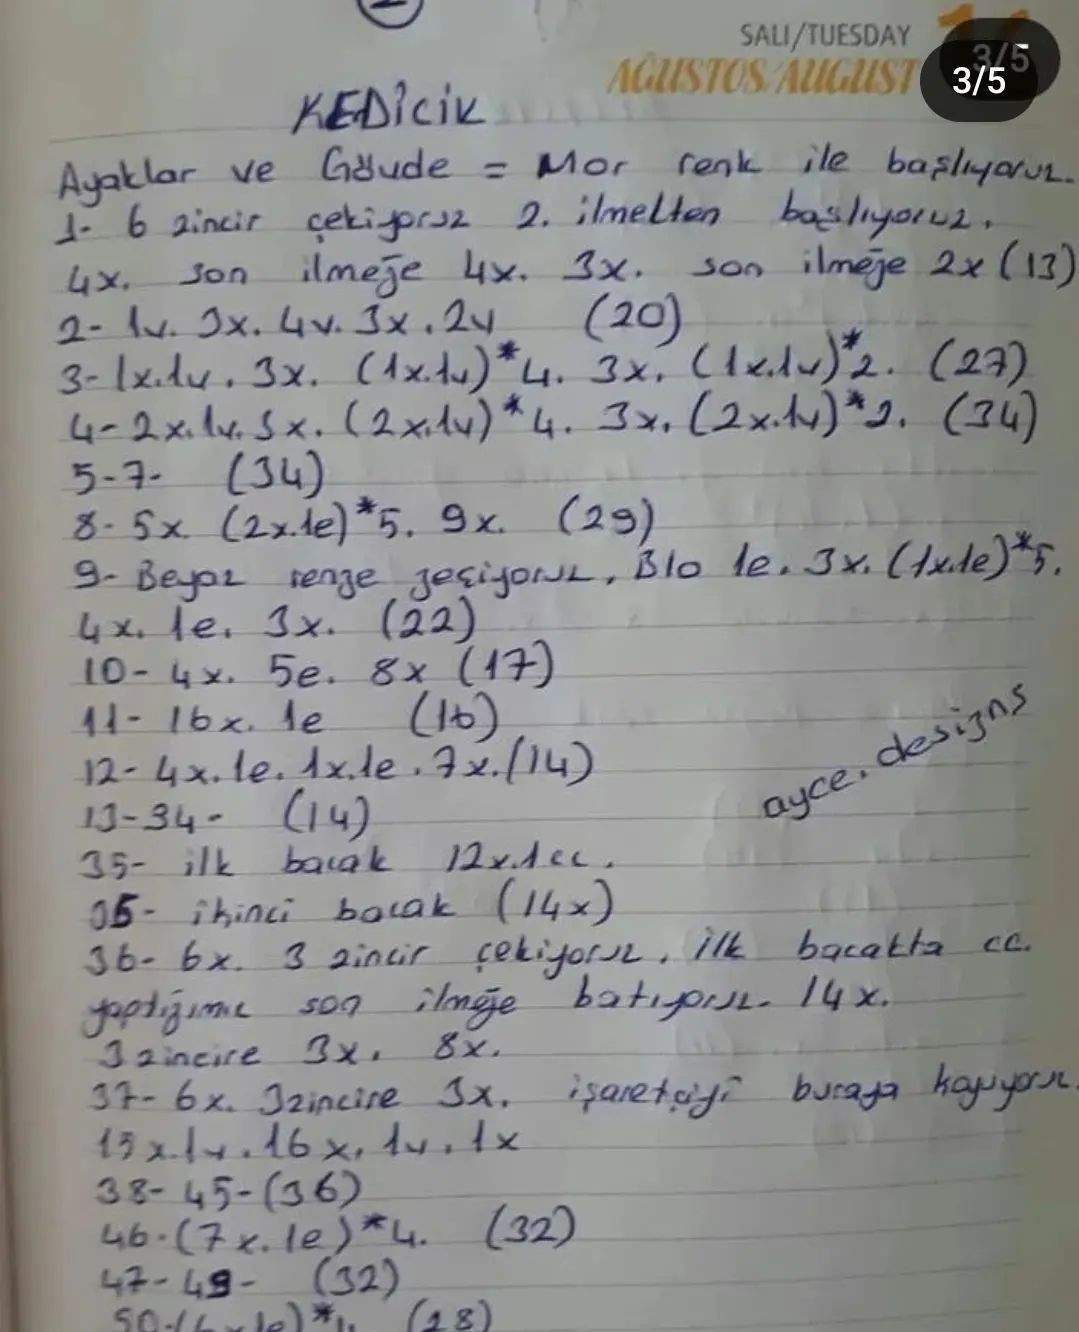 SALI/TUESDAY
AĞUSTOS/AUGUST
3/5
KEDİCİK
Ayaklar ve Gövde = Mor renk ile başlıyoruz.
1- 6 zincir çekiyoruz 2. ilmekten başlıyoruz.
4x. son ilmeğe 4x. 3x. son ilmeğe 2x (13)
2- 1v. 3x. 4v. 3x. 2v (20)
3- 1x.1v. 3x. (1x.1v)*4. 3x. (1x.1v)*2. (27)
4- 2x.1v. 3x. (2x.1v)*4. 3x. (2x.1v)*2. (34)
5-7- (34)
8- 5x (2x.1e)*5. 9x. (29)
9- Beyaz renge geçiyoruz. Blo 1e. 3x. (1x.1e)*5.
4x. 1e. 3x. (22)
10- 4x. 5e. 8x (17)
11- 16x. 1e (16)
12- 4x.1e. 1x.1e. 7x. (14)
13-34- (14)
35- ilk bacak 12x.1cc.
35- ikinci bacak (14x)
36- 6x. 3 zincir çekiyoruz. ilk bacakta cc.
yaptığımız son ilmeğe batıyoruz. 14x.
3 zincire 3x. 8x.
37- 6x. 3zincire 3x. işaretçiyi buraya koyuyoruz.
15x.1v. 16x. 1v. 1x
38- 45- (36)
46- (7x.1e)*4. (32)
47- 49- (32)
50-(6x1e)*4. (28)
ayce.designs